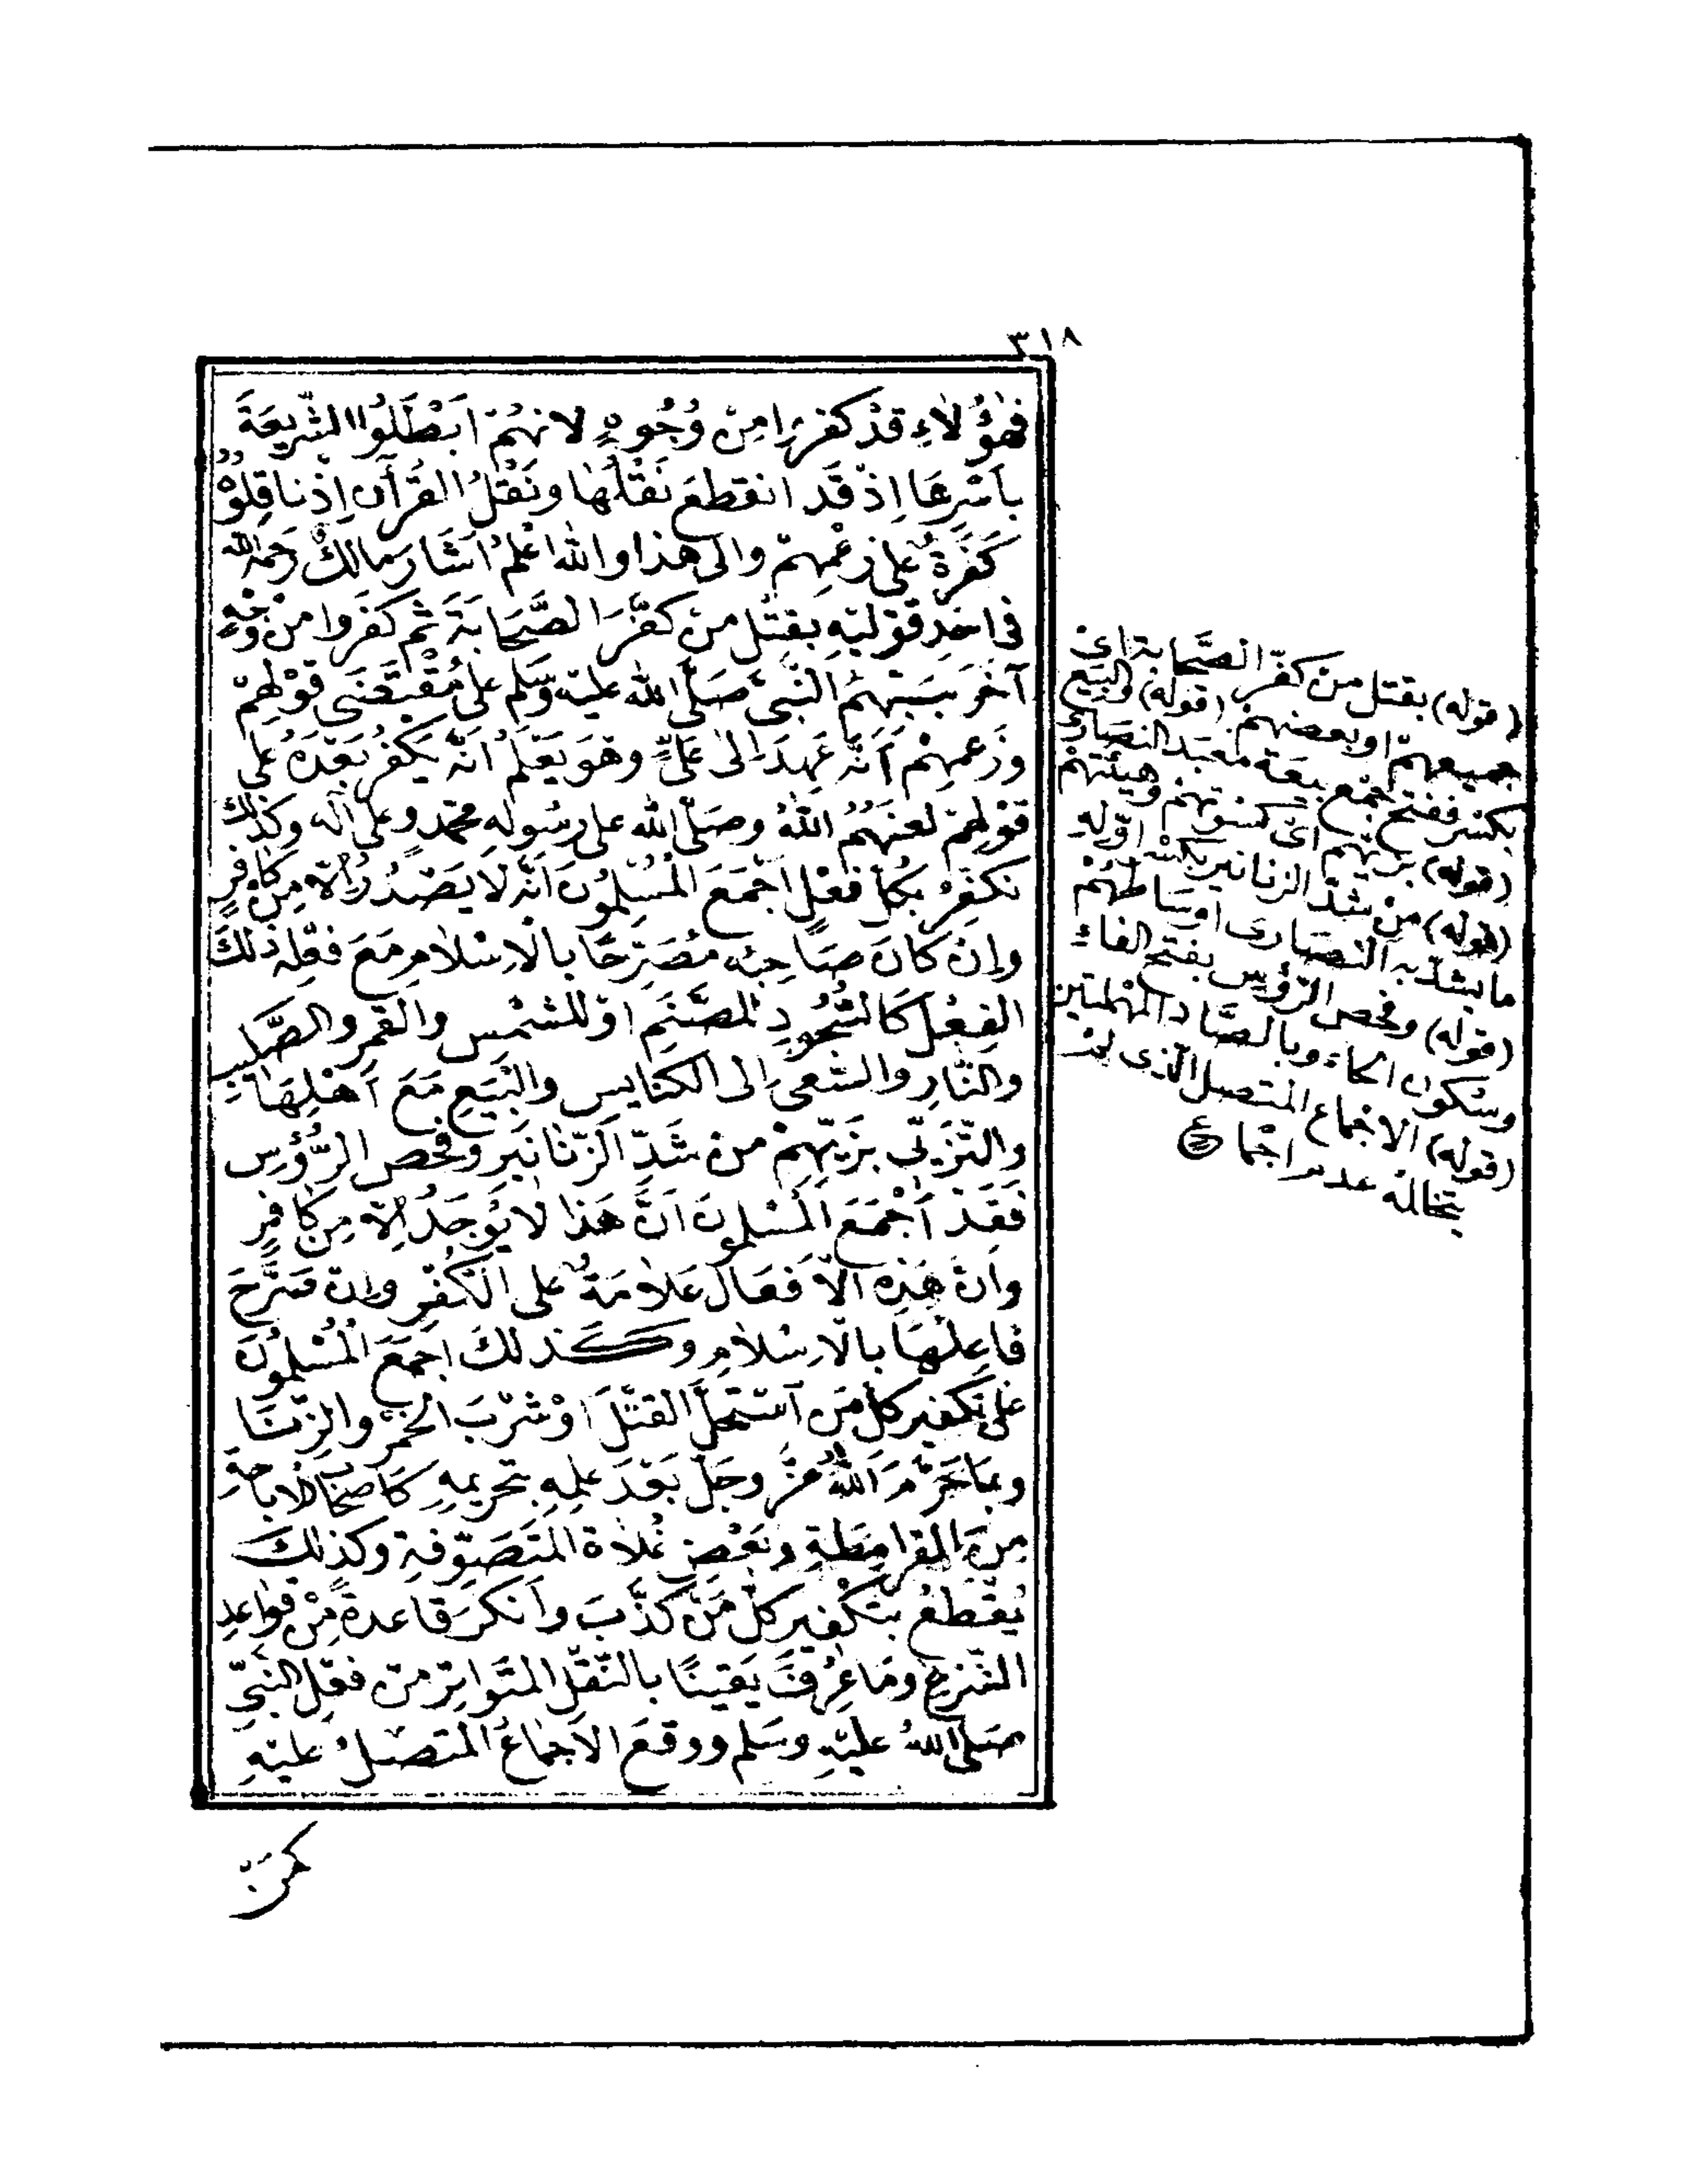 ٣١٨
فَهٰؤُلَاءِ قَدْ كَفَرُوا مِنْ وُجُوهٍ لِاَنَّهُمْ اَبْطَلُوا الشَّرِيعَةَ
بِأَسْرِهَا اِذْ قَد انقطعَ نَقْلُهَا ونَقْلُ القُرْآنِ اِذْ نَاقِلُوهُ
كَفَرَةٌ عَلٰى زَعْمِهِمْ والى هذا والله اعْلَمُ اَشَارَ مَالِكٌ رَحِمَهُ الله
فى اَحَدِ قَوْلَيْهِ بِقَتْلِ مَنْ كَفَّرَ الصَّحَابَةَ ثُمَّ كَفَرُوا مِنْ وَجْهٍ
آخَرَ بِسَبِّهِمُ النَّبِيَّ صَلَّى الله عليْهِ وسَلَّم على مُقْتَضٰى قَوْلِهِمْ
وَزَعْمِهِمْ اَنَّهُ عَهِدَ اِلٰى عَلِيٍّ وهُوَ يَعْلَمُ اَنَّهُ يَكْفُرُ بَعْدَهُ عَلٰى
قَوْلِهِمْ لَعَنَهُمُ اللهُ وصَلَّى الله على رسُولِهِ محمّدٍ وعلى آلِه وكذلك
نكَفِّرُ بِكُلِّ فِعْلٍ اَجْمَعَ الْمُسْلِمُونَ اَنَّهُ لَا يَصْدُرُ اِلَّا مِنْ كَافِرٍ
وَاِنْ كَانَ صَاحِبُهُ مُصَرِّحًا بِالْاِسْلَامِ مَعَ فِعْلِهِ ذٰلِكَ
الفِعْلَ كَالسُّجُودِ لِلصَّنَمِ اَوْ للشَّمْسِ والْقَمَرِ والصَّلِيبِ
والنَّارِ والسَّعْىِ اِلَى الْكَنَائِسِ والْبِيَعِ مَعَ اَهْلِهَا
والتَّزَيِّى بِزِيِّهِمْ مِنْ شَدِّ الزَّنَانِيرِ وفَحْصِ الرُّؤُسِ
فَقَدْ اَجْمَعَ الْمُسْلِمُونَ اَنَّ هٰذَا لَا يُوجَدُ اِلَّا مِنْ كَافِرٍ
وَاَنَّ هٰذِهِ الْاَفْعَالَ عَلَامَةٌ عَلَى الْكُفْرِ وَاِنْ صَرَّحَ
فَاعِلُهَا بِالْاِسْلَامِ وكَذٰلِكَ اَجْمَعَ الْمُسْلِمُونَ
عَلٰى تَكْفِيرِ كُلِّ مَنِ اسْتَحَلَّ الْقَتْلَ اَوْ شُرْبَ الْخَمْرِ والزِّنَا
مِمَّا حَرَّمَ اللهُ عَزَّ وجَلَّ بَعْدَ عِلْمِهِ بِتَحْرِيمِهِ كَاَصْحَابِ الْاِبَاحَةِ
مِنَ الْقَرَامِطَةِ وبَعْضِ غُلَاةِ الْمُتَصَوِّفَةِ وكذلِكَ
يُقْطَعُ بِتَكْفِيرِ كُلِّ مَنْ كَذَّبَ واَنْكَرَ قَاعِدةً مِنْ قَوَاعِدِ
الشَّرْعِ ومَا عُرِفَ يَقِينًا بِالنَّقْلِ الْمُتَوَاتِرِ مِنْ فِعْلِ النَّبِيِّ
صَلَّى اللهُ عَلَيْهِ وسَلَّم ووَقَعَ الْاِجْمَاعُ الْمُتَّصِلُ عَلَيْهِ
(قوله) بقتل من كفّر الصّحابة اى
جميعهم او بعضهم (قوله) والبيع
بكسر ففتح جمع بيعة معبد النصارى
(قوله) بزيّهم اى كسوتهم وهيئتهم
(قوله) من شدّ الزنانير بكسر اوّله
ما يشدّ به النصارى اوساطهم
(قوله) وفحص الرؤس بفتح الفاء
وسكون الحاء وبالصّاد المهملتين
(قوله) الاجماع المتصل الّذى لم
يتخالله عدم اجماع
كمن